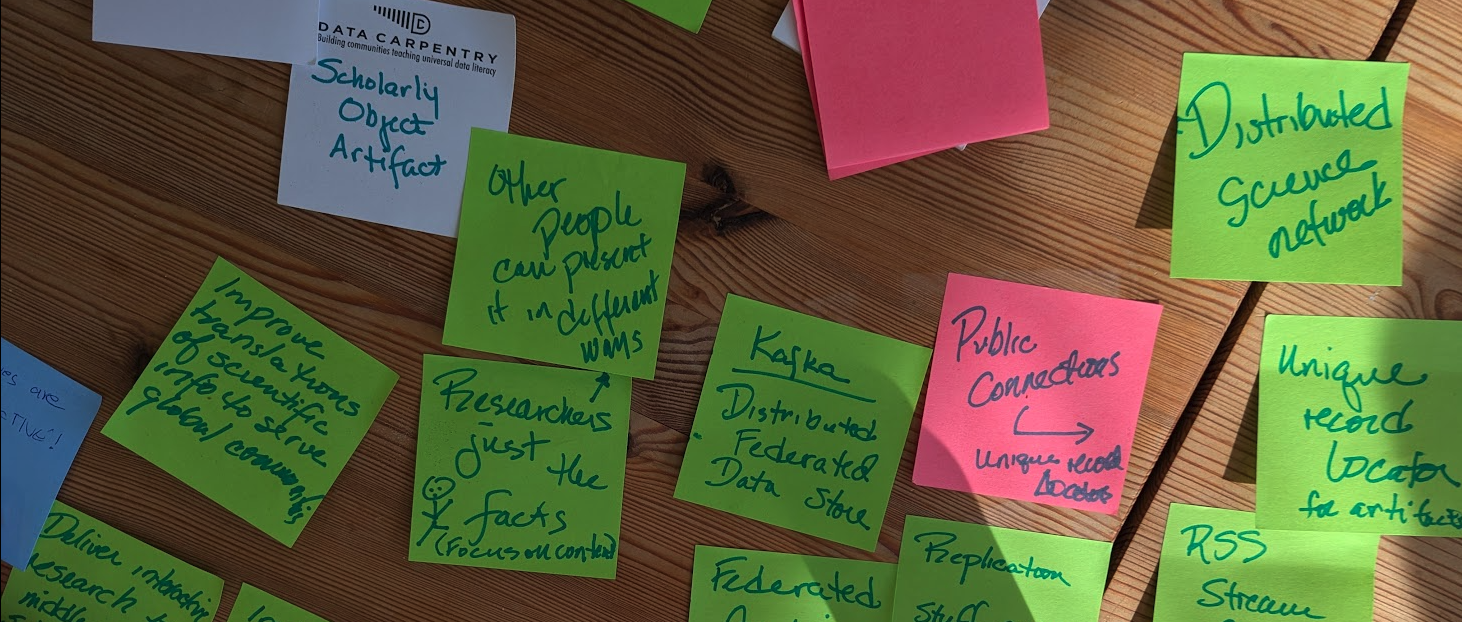 DATA CARPENTRY
Building communities teaching universal data literacy
Scholarly
Object
Artifact
Other
people
can present
it in different
ways
Distributed
Science
network
Improve
translations
of scientific
info to serve
global commons
Researchers
just the
facts
(Focus on content)
Kafka
Distributed
Federated
Data Store
Public
Connections
unique record
locator
Unique
record
locator
for artifacts
es are
CTIVE!
Deliver interactive
research
middle
Federated
Replication
Stuff
RSS
Stream